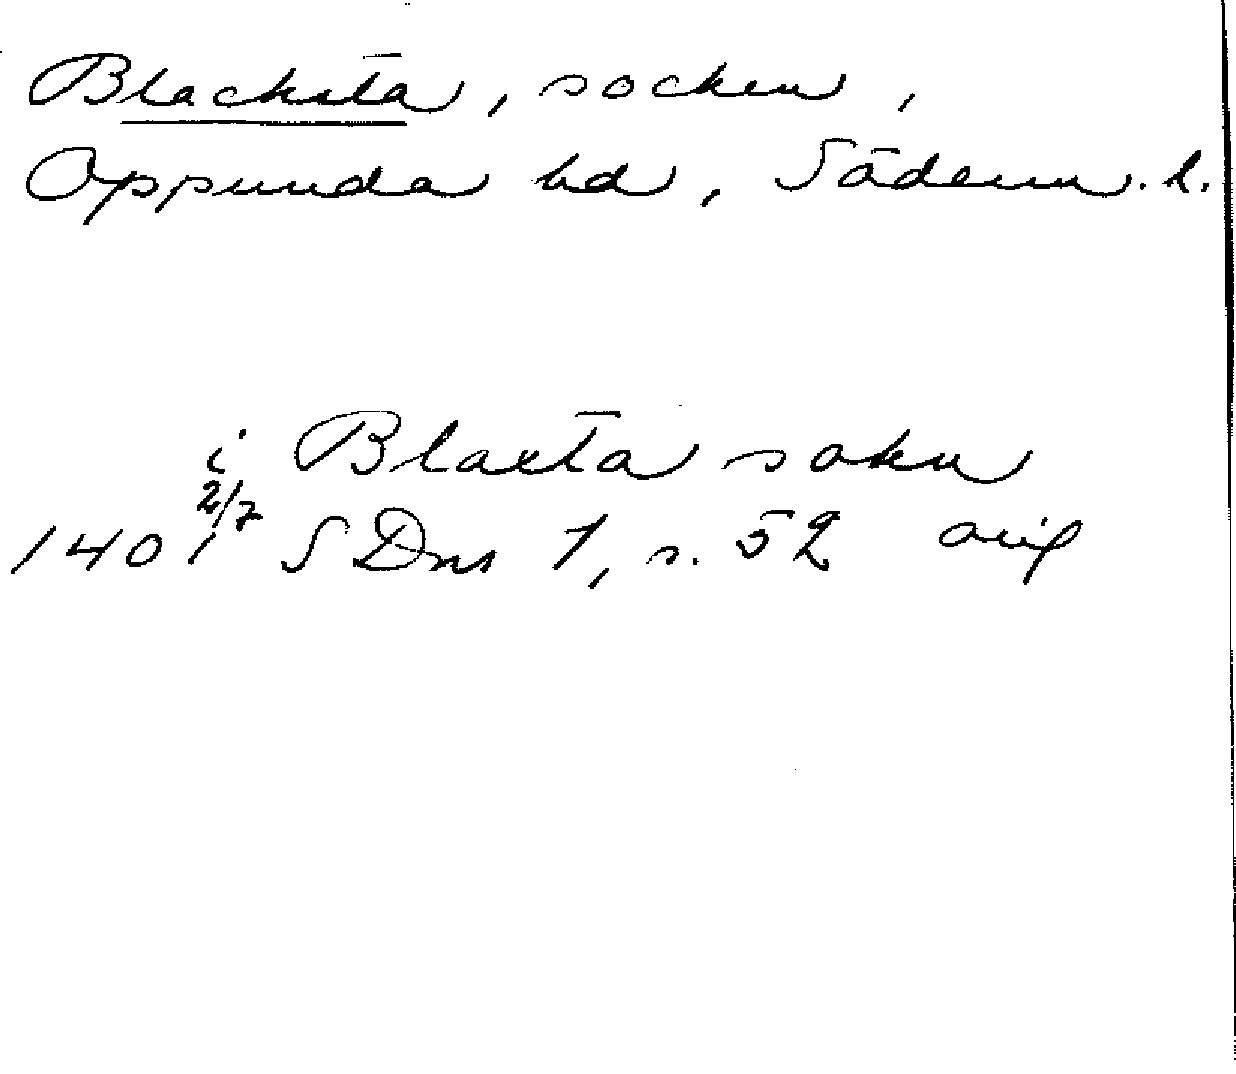 Blacksta, socken,
Oppunda hd, Söderm. l.
i Blaxta sokn
1401 2/7 SDns 1, s. 52 orig